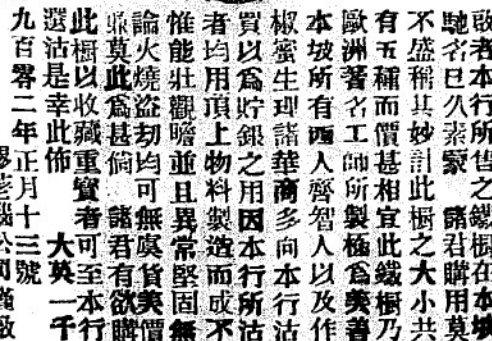 敬者本行所售之鐵橱在本坡
馳名已久素蒙 諸君購用莫
不盛稱其妙計此橱之大小共
有五種而價甚相宜此鐵橱乃
歐洲著名工師所製極爲美善
本坡所有西人齊智人以及作
椒蜜生理諸華商多向本行沽
買以爲貯銀之用因本行所沽
者均用頂上物料製造而成不
惟能壯觀瞻並且異常堅固無
論火燒盜刧均可無虞貨美價
廉莫此爲甚倘 諸君有欲購
此橱以收藏重寳者可至本行
選沽是幸此佈 大英一千
九百零二年正月十三號
公司謹啟